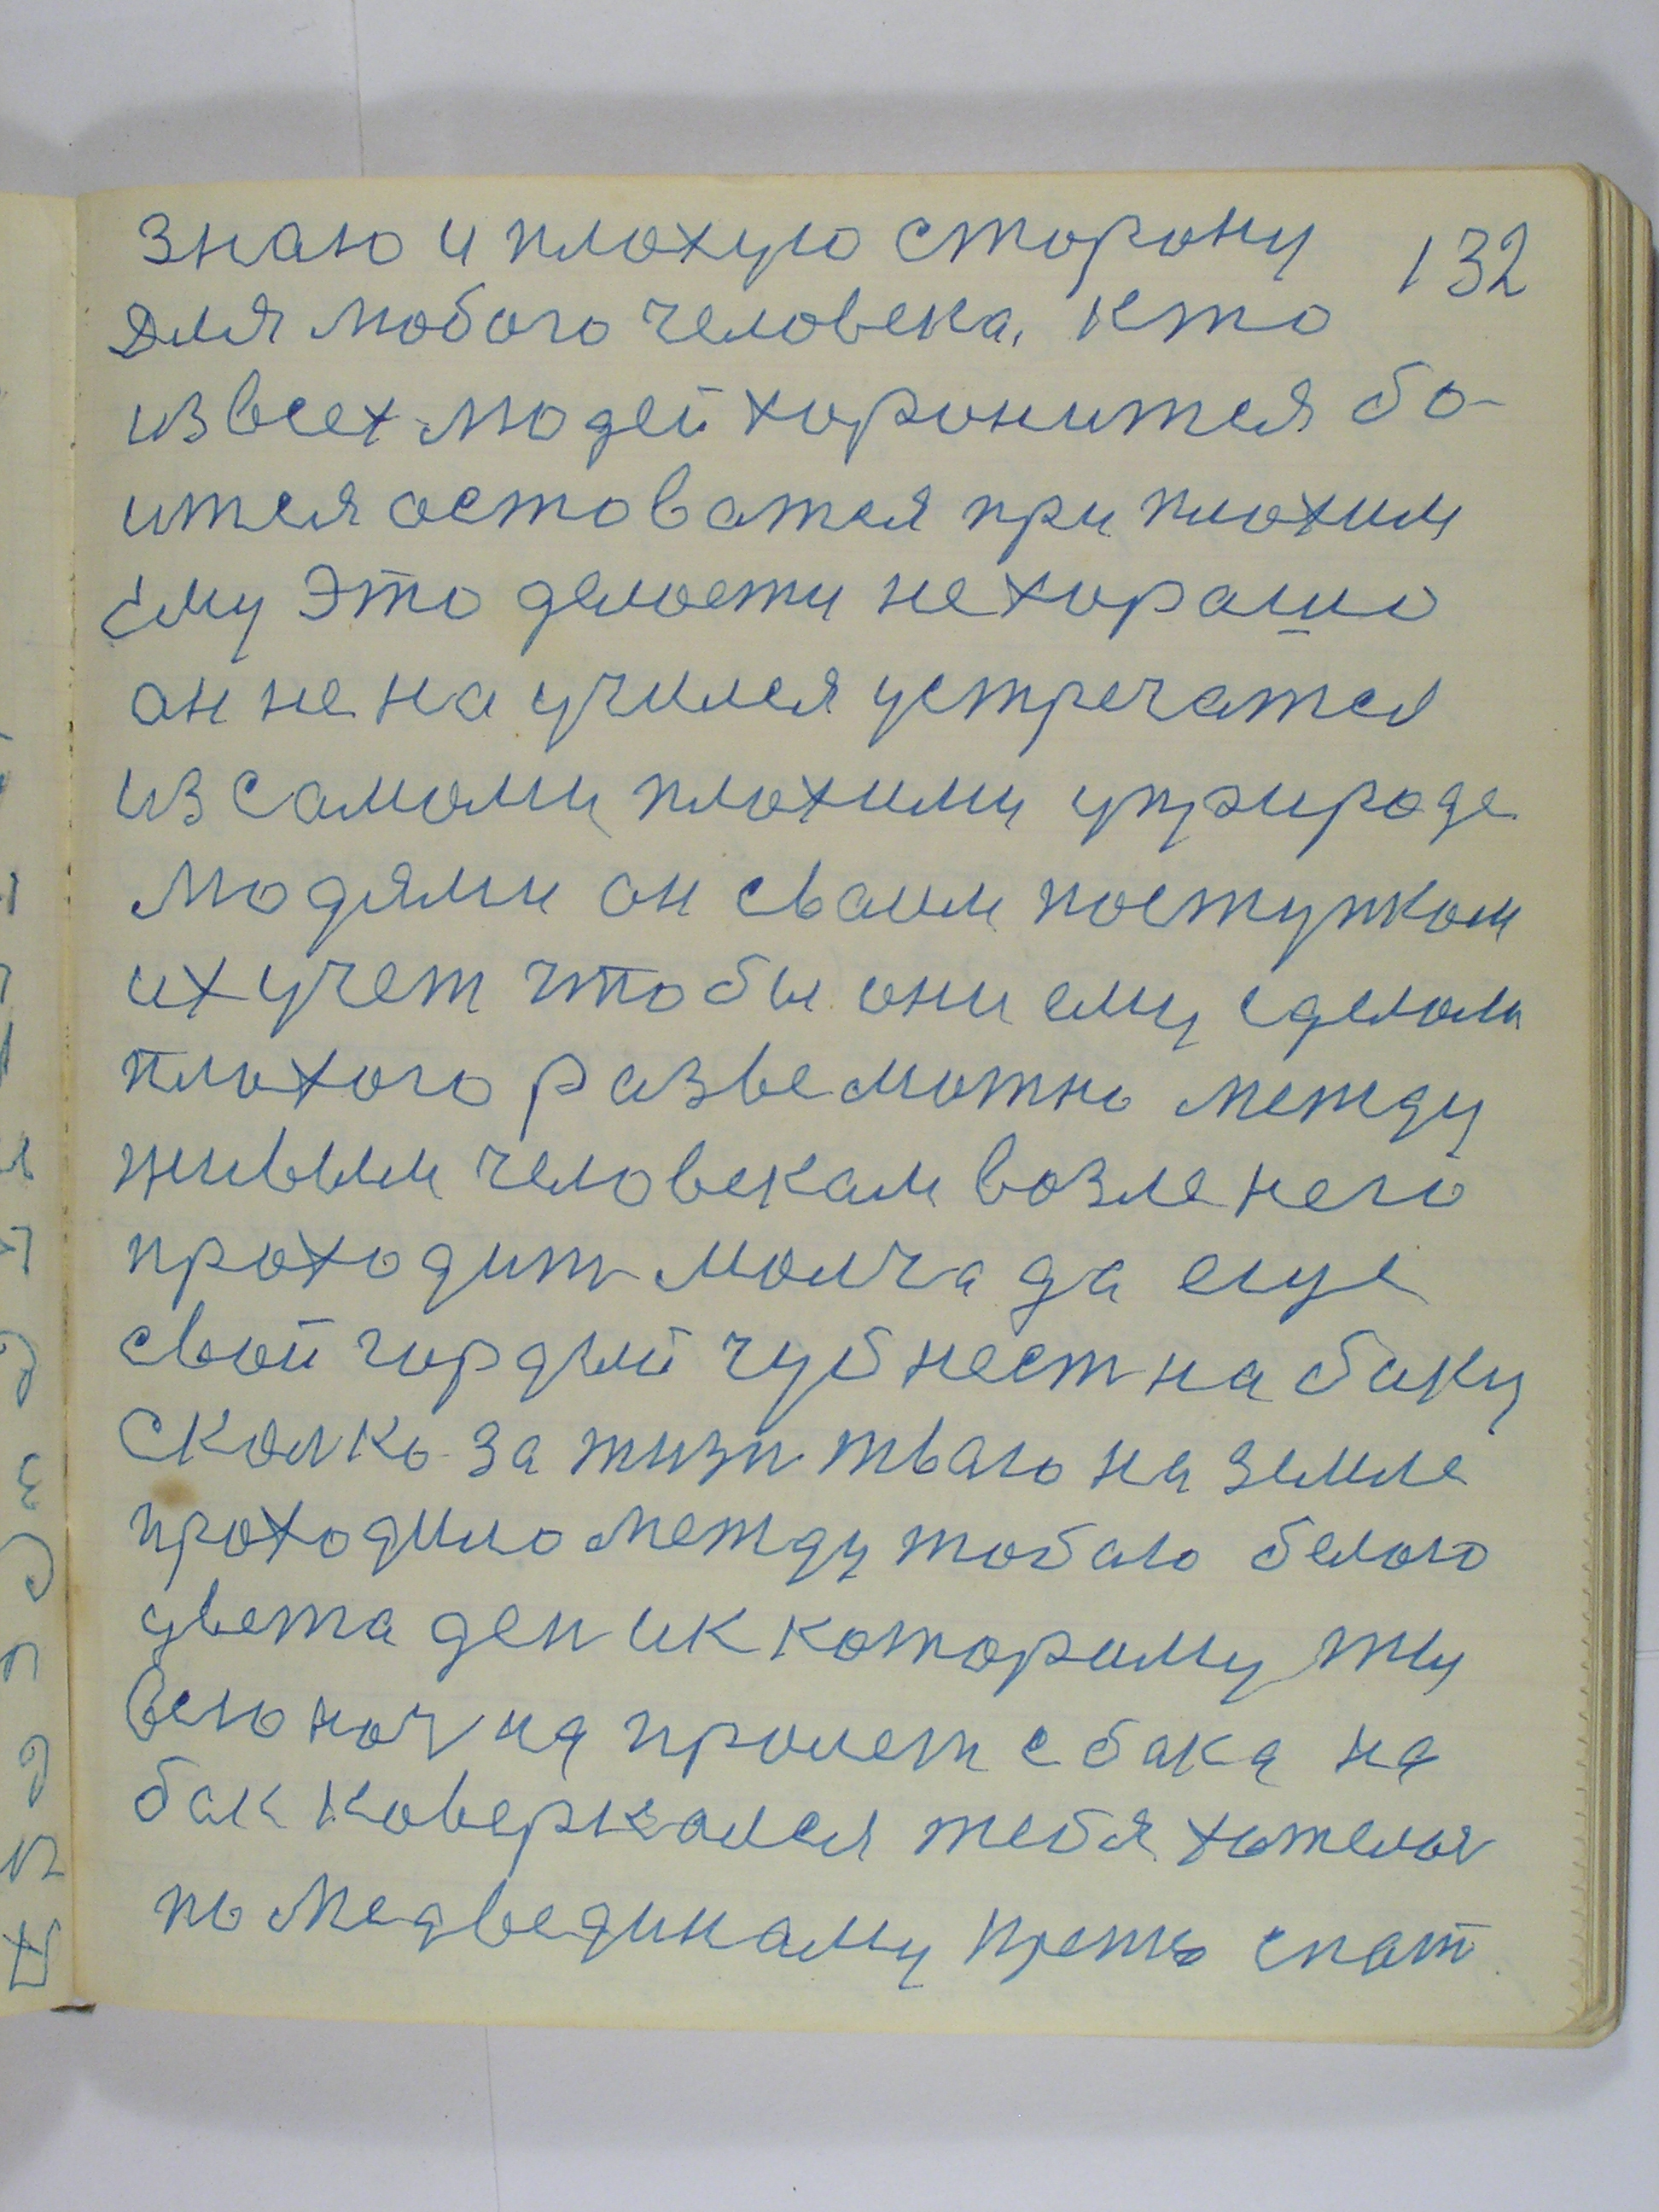 132
знаю и плохую сторону
для любого человека. Кто
из всех людей хоронится бо-
ится остоватся при плохим
ему это делоети не хорашо
он не на учился устречатся
из самоми плохими уприроде
людями он сваим поступком
их учет чтобы они ему сделоли
плохого разве можно между
живым человекам возле него
проходить молча да еще
свой гордый чуб несть на баку
Сколко за жизн тваю на земле
проходило между тобаю белого
цвета ден и к которому ты
всю ноч на пролет с бака на
бак коверкался тебя
по медведикаму спат